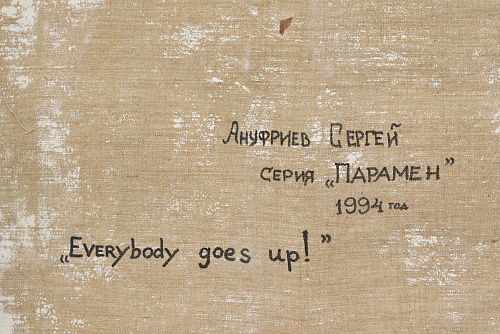 Ануфриев Сергей
серия „Парамен”
1994 год
„Everybody goes up!”